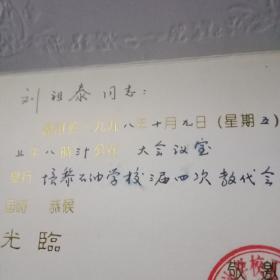 刘祖泰同志:
谨订於一九九八年十月九日(星期五)
上午八時三十分在 大会议室
舉行 培黎石油学校三届四次教代会
屆時 恭候
光臨
敬邀